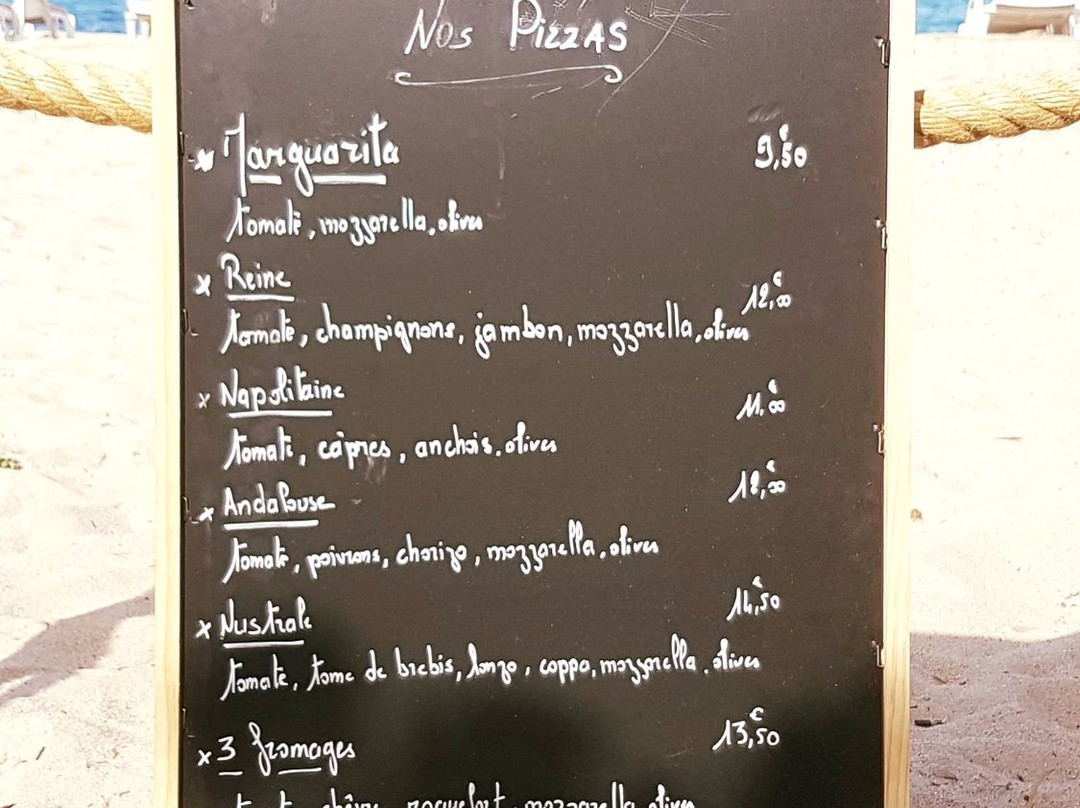 Nos Pizzas
x Marguarita 9,50€
tomate, mozzarella, olives
x Reine 12,00€
tomate, champignons, jambon, mozzarella, olives
x Napolitaine 11,00€
tomate, câpres, anchois, olives
x Andalouse 12,00€
tomate, poivrons, chorizo, mozzarella, olives
x Nustrale 14,50€
tomate, tome de brebis, lonzo, coppa, mozzarella, olives
x 3 fromages 13,50€
tomate, chèvre, roquefort, mozzarella, olives